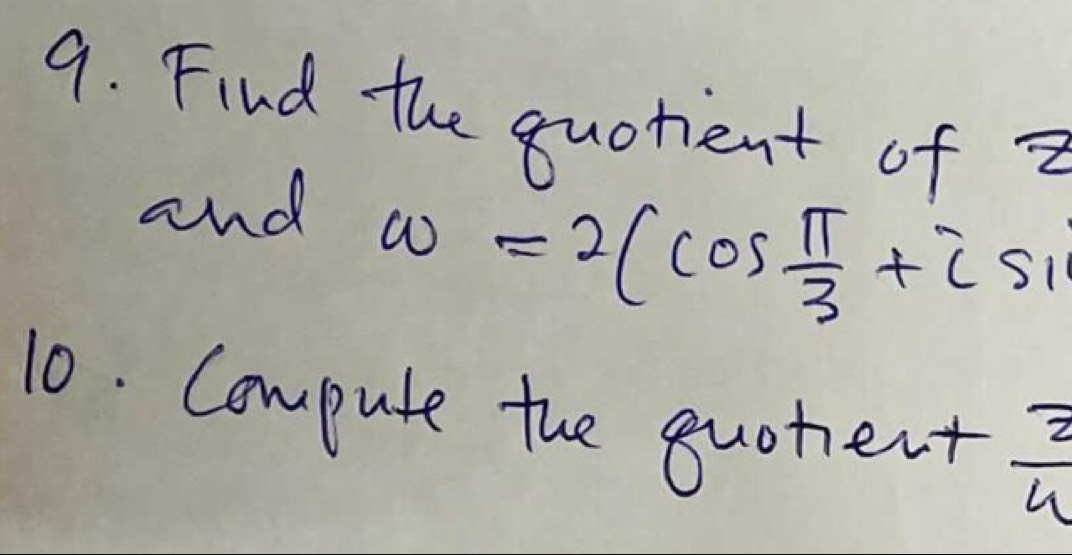 9. Find the quotient of z
and ω = 2(cos π/3 + i si
10. Compute the quotient z/w